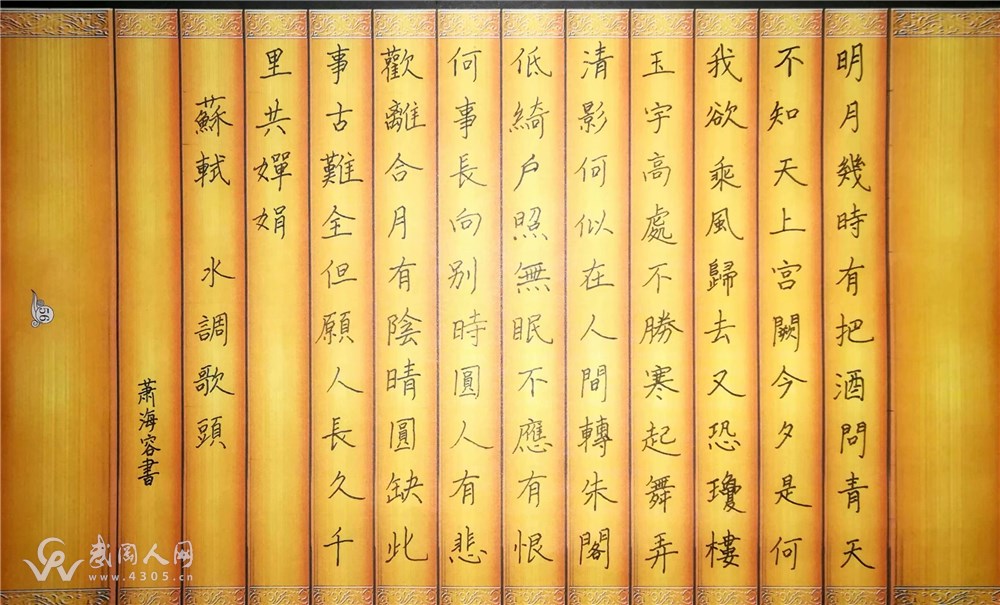 明月幾時有把酒問青天
不知天上宮闕今夕是何
我欲乘風歸去又恐瓊樓
玉宇高處不勝寒起舞弄
清影何似在人間轉朱閣
低綺戶照無眠不應有恨
何事長向别時圓人有悲
歡離合月有陰晴圓缺此
事古難全但願人長久千
里共嬋娟
蘇軾 水調歌頭
蕭海容書
56
武冈人网
www.4305.cn